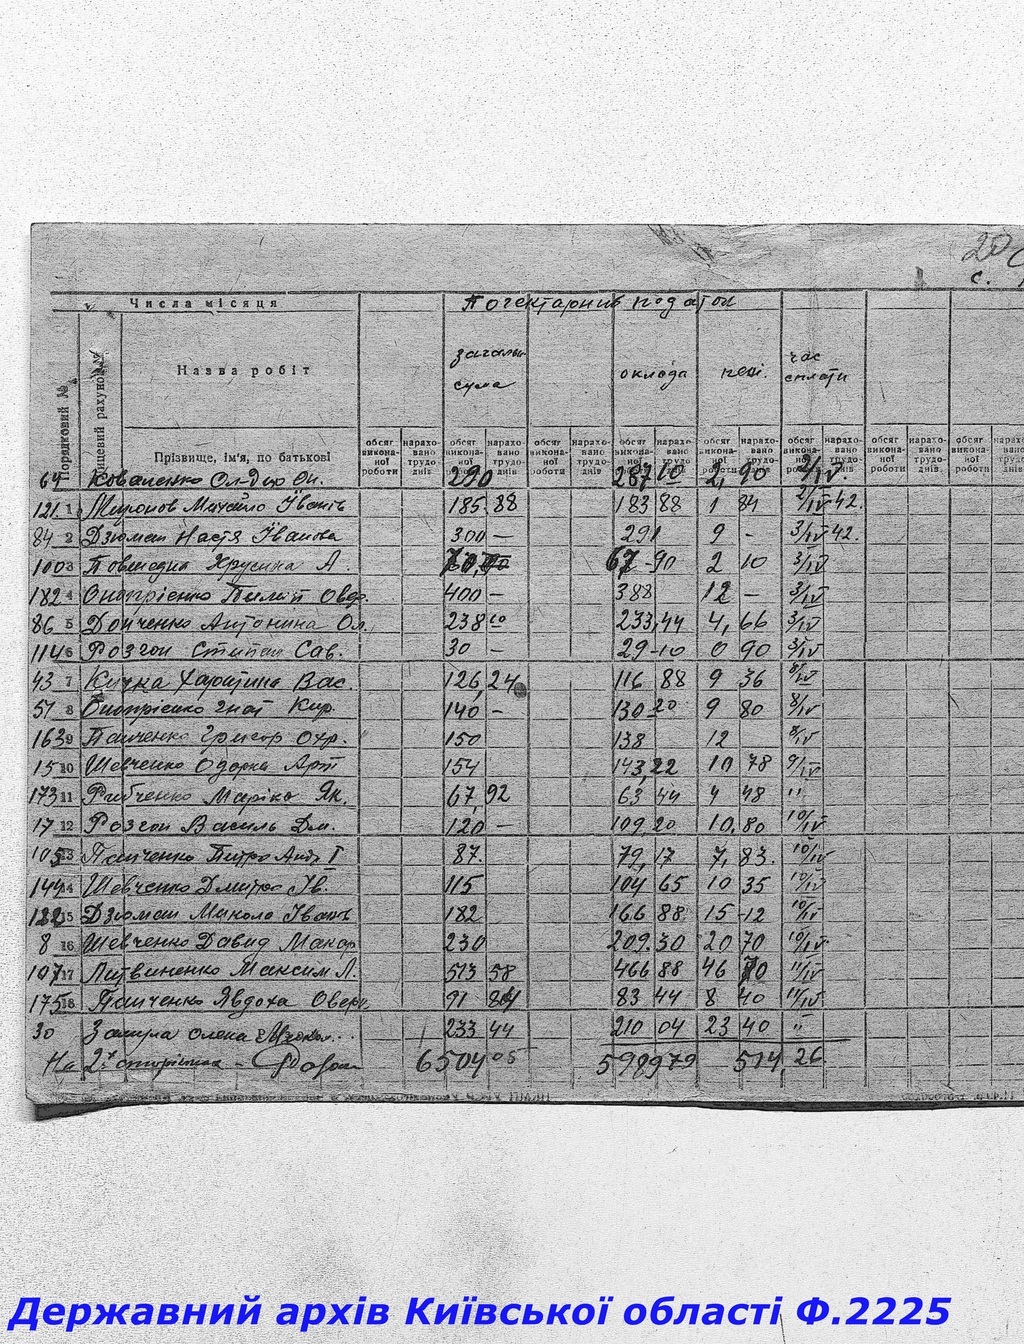 20
с.
Числа місяця
Погектарний податок
Назва робіт
загальн.
сума
оклада
пені.
час
сплати
Порядковий №
Лицевий рахунок №
Прізвище, ім'я, по батькові
обсяг виконаної роботи нарахо-вано трудо-днів обсяг виконаної роботи нарахо-вано трудо-днів обсяг виконаної роботи нарахо-вано трудо-днів обсяг виконаної роботи нарахо-вано трудо-днів обсяг виконаної роботи нарахо-вано трудо-днів обсяг виконаної роботи нарахо-вано трудо-днів обсяг виконаної роботи нарахо-вано трудо-днів обсяг виконаної роботи
64 Коваленко Ол-др Он. 290 287 10 2, 90 2/IV.
121 1 Миронов Михайло Іванів 185.88 183 88 1 84 2/IV 42.
84 2 Дзюман Настя Іванова 300 — 291 9 - 3/IV 42.
100 3 А. 67-90 2 10 3/IV
182 4 Онопрієнко Овер. 400 — 388 12 — 3/IV
86 5 Дойченко Антонина Ол. 238 10 233,44 4, 66 3/IV
114 6 Розгон Степан Сав. 30 — 29-10 0 90 3/IV
43 7 Кичка Харитина Вас. 126,24 116 88 9 36 8/IV
51 8 Онопрієнко Гнат Кир. 140 — 130-20 9 80 8/IV
163 9 Панченко Григор Охр. 150 138 12 8/IV
15 10 Шевченко Одарка Арт 154 143,22 10 78 9/IV
173 11 Рибченко Марія Як. 67,92 63 44 4 48 "
17 12 Розгон Василь Дм. 120 — 109 20 10.80 10/IV
105 13 Панченко Петро Ант I 87. 79,17 7, 83. 10/IV
144 14 Шевченко Дмитро Ів. 115 104 65 10 35 10/IV
15 Дзюман Микола Іванів 182 166 88 15-12 10/IV
8 16 Шевченко Давид Макар 230 209.30 20 70 10/IV
107 17 Литвиненко Максим Л. 513 58 466 88 46 70 11/IV
175 18 Панченко Явдоха Оверк. 91 84 83 44 8 40 11/IV
30 Олена 233 44 210 04 23 40 "
На 2й сторінках – 6504 05 5989 79 514,26
Державний архів Київської області Ф.2225